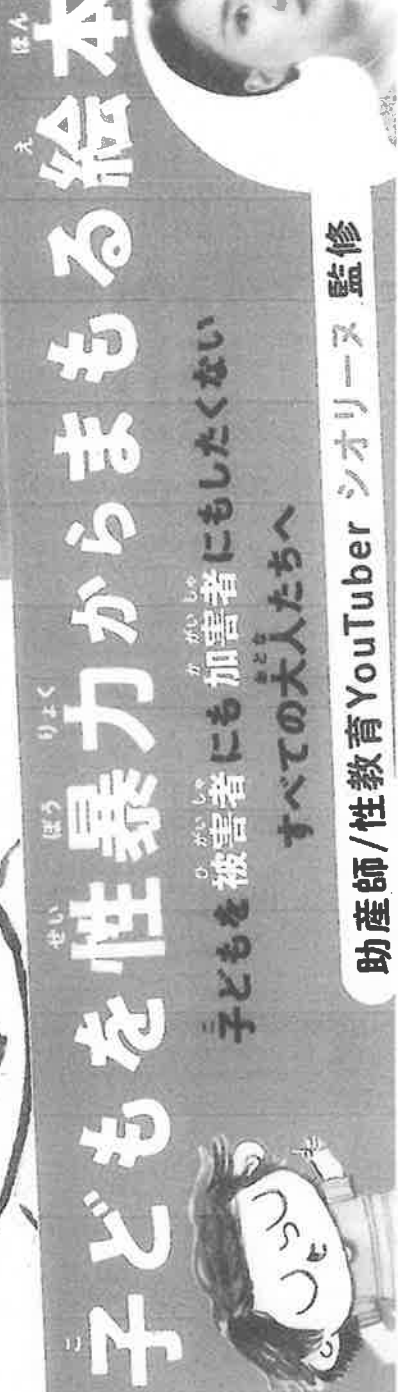 子どもを性暴力からまもる絵本
子どもを被害者にも加害者にもしたくない
すべての大人たちへ
助産師/性教育YouTuber シオリーヌ 監修